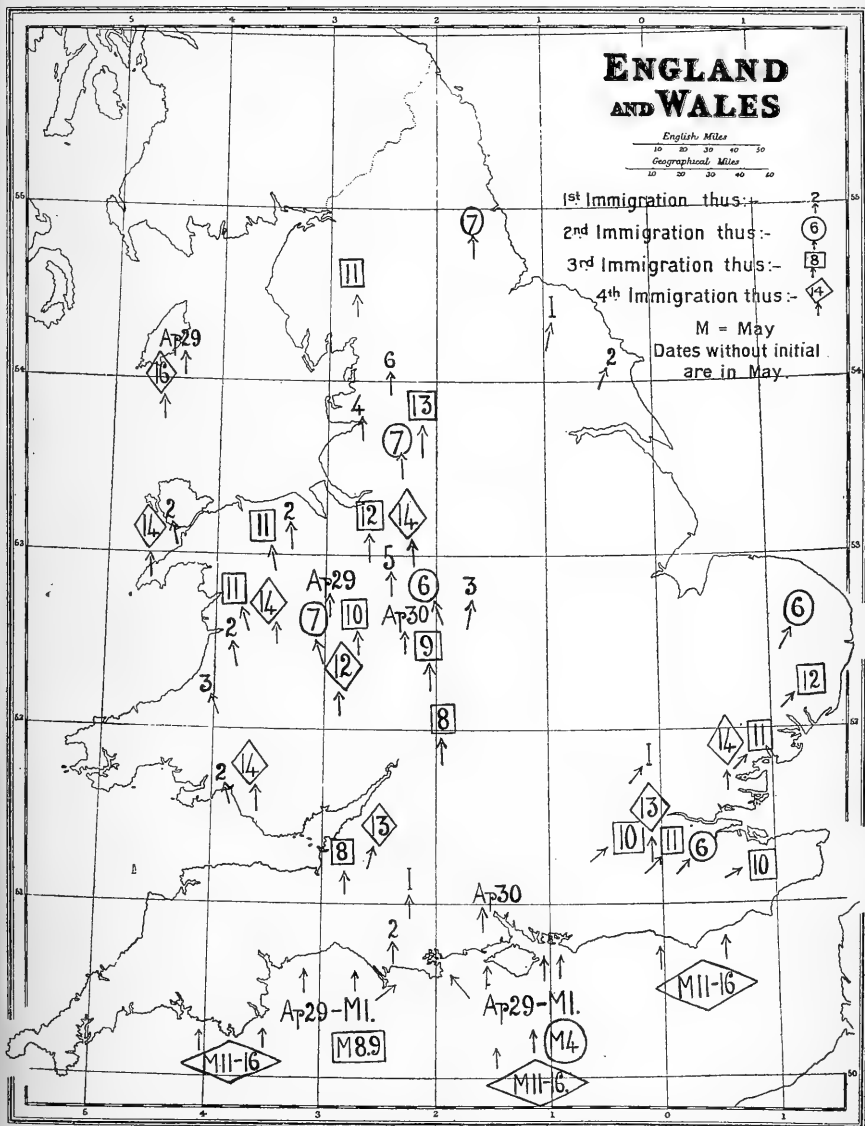 5 4 3 2 1 0 1
ENGLAND
AND WALES
English Miles
10 20 30 40 50
Geographical Miles
10 20 30 40 50
1st Immigration thus:- 2
2nd Immigration thus:- 6
3rd Immigration thus:- 8
4th Immigration thus:- 14
M = May
Dates without initial
are in May.
55 55
7
11
I
Ap29
16
54 54
6
2
4
13
7
2
14
11
2
12
14
53 53
5
Ap29
6
3
11
14
7
10
Ap30
6
2
9
12
3
12
8
52 52
14
11
I
2
14
13
13
10
11
6
8
10
51 51
I
Ap30
2
Ap29-M1.
Ap29-M1.
M11-16
M8.9
M4
M11-16
M11-16.
50
5 4 3 2 1 0 1